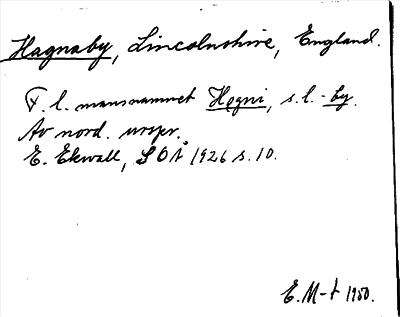 Hagnaby, Lincolnshire, England.
F. l. mansnamnet Hǫgni, s. l. -by.
Av nord. urspr.
E. Ekwall, SOÅ 1926 s. 10.
E. M-t 1950.